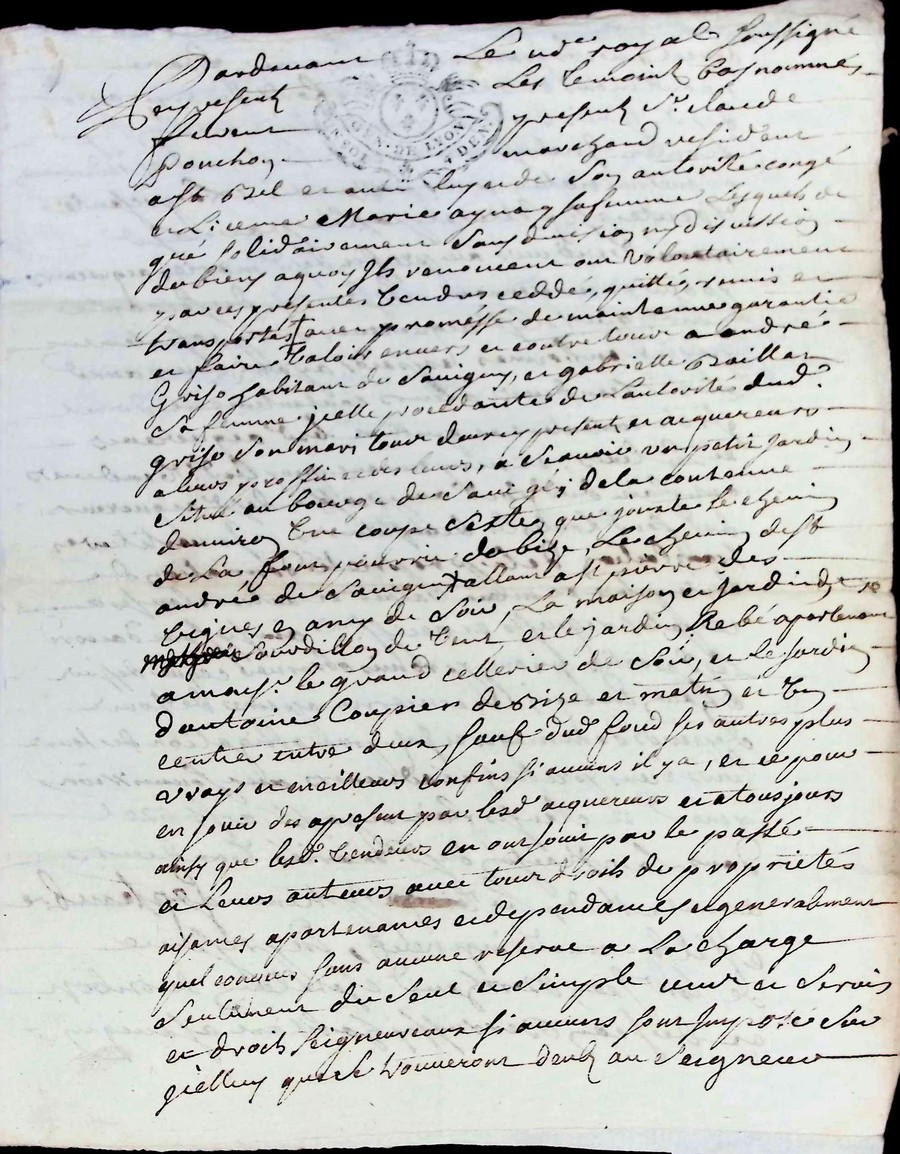 Pardevant Le no.re royal soussigné
en present Les temoins bas nommés
furent presents Sr. claude
Ponchon marchand resident
a St. Bel et autorité congé
et Licence Marie aynay sa femme Lesquels de
gré solidairement sans division ny discussion
de biens a quoy Ils renoncent ont Volontairement
par ces presentes Vendus, ceddé, quittés, remis et
transportés avec promesse de maintenue garantie
et faire Valoir envers et contre tous a andré
Griso habitant de Savigny, et gabrielle Baillat
Sa femme jcelle procedante de L'autorité dud.
griso Son mari tous deux cy presents et acquereurs
a leurs proffit et des leurs, a Scavoir un petit Jardin
Situé au bourg de Savigny de la contenue
d'environ Une coupe que jouxte le chemin
de La font pourrie de bize, Le chemin de St
andré de Savigny allant a St. pierre des
de Soir, La maison et jardin de
Sourdillon de Vent, et le jardin apartenant
a monsr. le grand cellerier de Soir, et Le Jardin
d'antoine Coupier de bize et matin et Un
centier entre deux, sauf dud. fond ses autres plus
vrays et meilleurs confins si aucuns il y a, et ce pour
en jouir des apresent par lesd. acquereurs et a tousjours
ainsy que lesd. Vendeurs en ont jouit par le passé
et Leurs auteurs avec tous droits de proprietés
aisances apartenances et dependances et generalement
quelconques sans aucune reserve a La charge
Seulement du Seul et Simple cens et Servis
et droits Seigneuriaux si aucuns sont Imposé Sur
jcelluy qui se trouveront deub au Seigneur
GEN. DE LYON